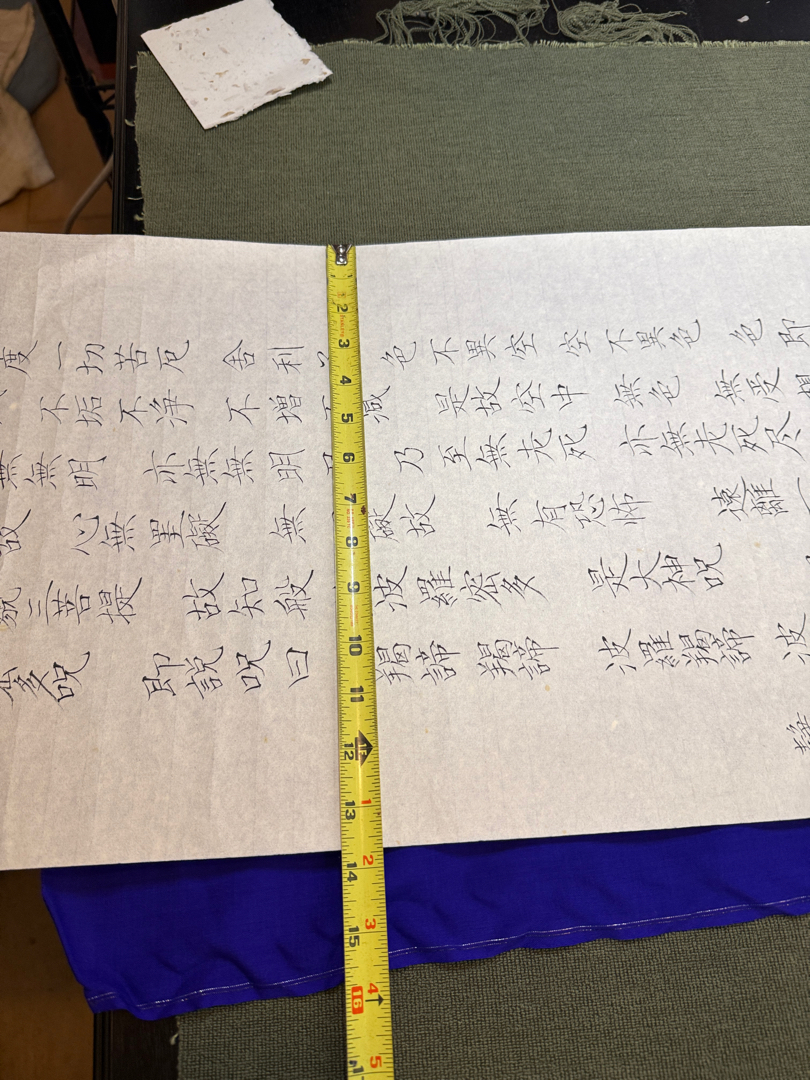 度 一切苦厄 舎利 色不異空 空不異色 色即
不垢不浄 不増不減 是故空中 無色 無受
無無明 亦無無明 乃至無老死 亦無老死尽
故 心無罣礙 無 礙故 無有恐怖 遠離一
藐三菩提 故知般 波羅密多 是大神呪
多呪 即説呪曰 羯諦 羯諦 波羅羯諦 波
2
3
4
5
6
7
8
9
10
11
1F
12
13
1
14
2
15
3
16
4
5